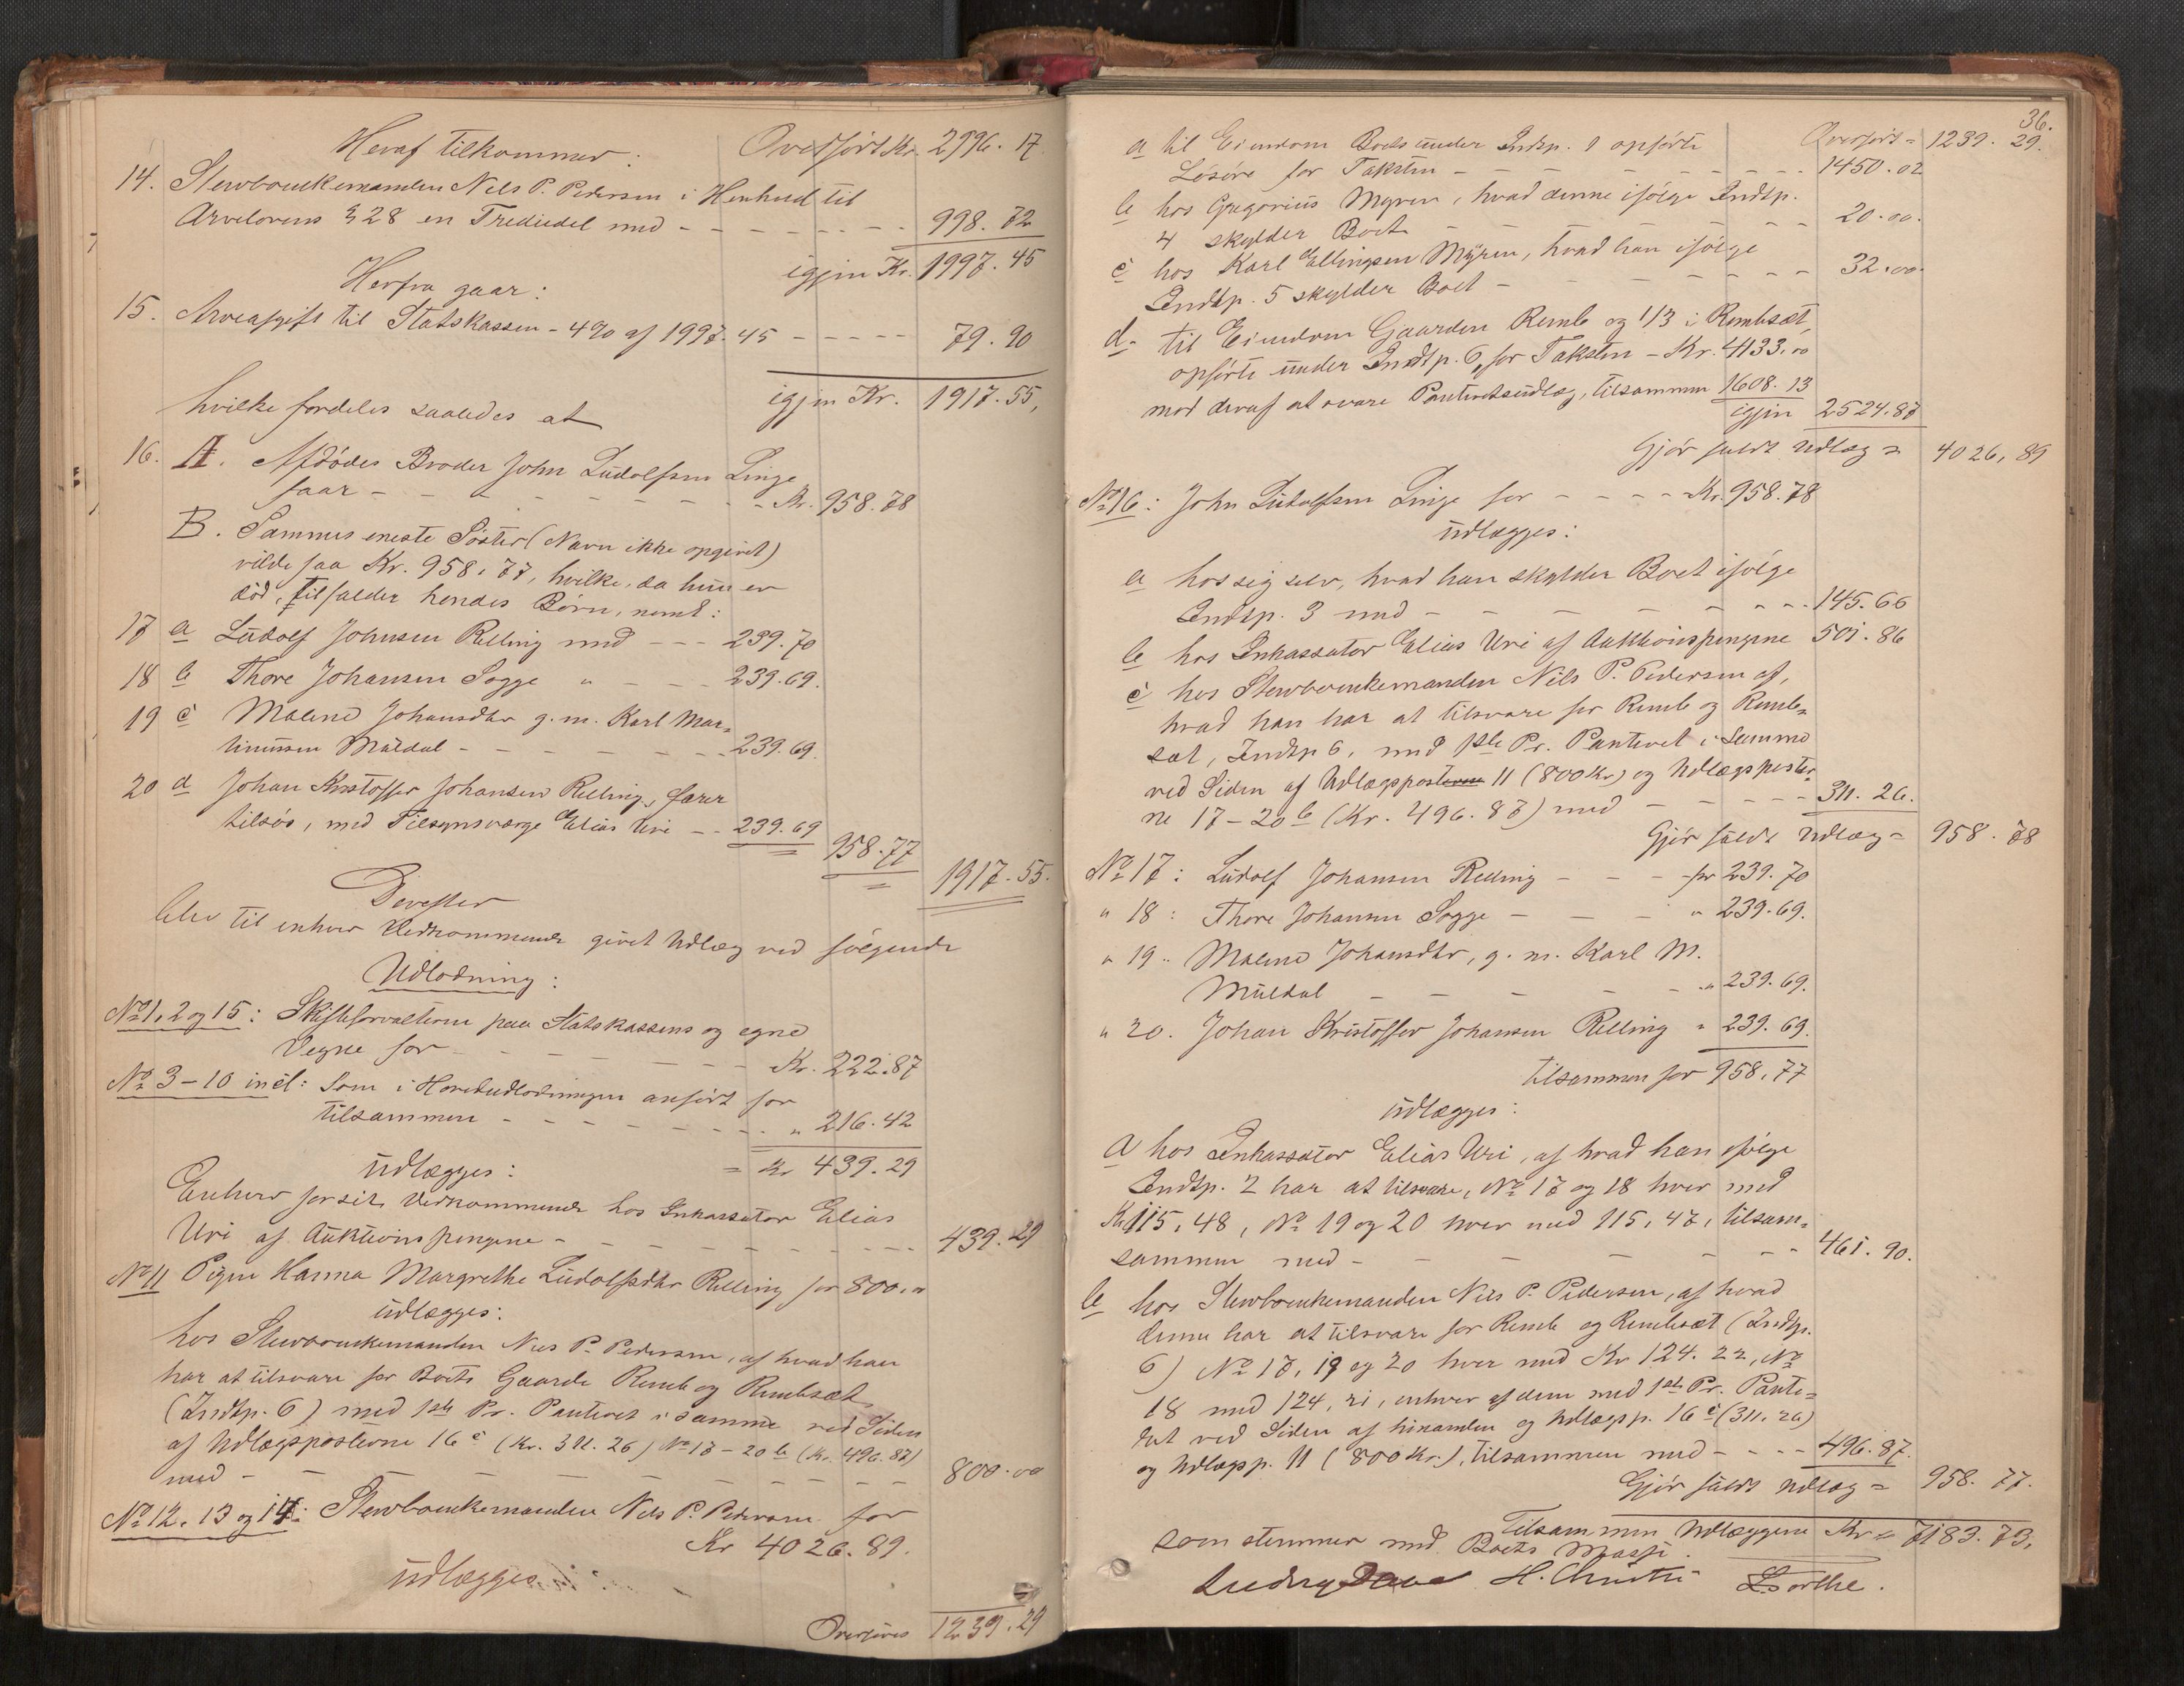 Overført Kr. 2996.17
Heraf tilkommer:
14. Stervboenkemanden Nils P. Pedersen i Henhold til
Arvelovens § 28 en Trediedel med - - - 998.72
igjen Kr. 1997.45
Herfra gaar:
15. Arveafgift til Statskassen - 4% af 1997.45 - - - 79.90
igjen Kr. 1917.55,
hvilke fordeles saaledes at
16. A. Afdødes Broder John Ludolfsen Linge
faar - - - Kr. 958.78
B. Sammes eneste Søster (Navn ikke opgivet)
vilde faa Kr. 958.77, hvilke, da hun er
død, tilfalder hendes Børn, nemlig:
17 a Ludolf Johnsen Relling med - - - 239.70
18 b Thore Johansen Sogge " - - - 239.69.
19 c Malene Johansdtr g. m. Karl Mar-
tinussen Muldal - - - 239.69.
20 d Johan Kristoffer Johansen Relling, farer
tilsøs, med Tilsynsværge Elias Uri - - 239.69
958.77
1917.55.
Derefter
blev til enhver Vedkommende givet Udlæg ved følgende
Udlodning:
No 1, 2 og 15: Skifteforvalteren paa Statskassens og egne
Vegne for - - - Kr. 222.87
No 3-10 incl: Som i Hovedudlodningen anført for
tilsammen - - - " 216.42
= Kr 439.29
udlægges:
Enhver forsit Vedkommende hos Inkassator Elias
Uri af Auktionspengene - - - 439.29
No 11 Pigen Hanna Margrethe Ludolfsdtr Relling for 800.00
udlægges:
hos Stervboenkemanden Nils P. Pedersen, af hvad han
har at tilsvare for Boets Gaarde Remb og Rembsæt
(Indtp. 6) med 1ste Pr. Panteret i samme ved Siden
af Udlægsposterne 16 c (Kr. 311.26) No 17-20 b (Kr. 496.87)
med - - - 800.00
No 12, 13 og 14: Stervboenkemanden Nils P. Pedersen for
Kr 4026.89.
udlægges
Overføres 1239.29
36.
Overført = 1239.29.
a til Eiendom Boets under Indtp. 1 opførte
Løsøre for Taksten - - - 1450.02
b hos Gregorius Myren, hvad denne ifølge Indtp.
4 skylder Boet - - - 20.00.
c hos Karl Ellingsen Myren, hvad han ifølge
Indtp. 5 skylder Boet - - - 32.00.
d. til Eiendom Gaarden Remb og 1/3 i Rembsæt,
opførte under Indtp. 6, for Taksten - Kr. 4133.00
mod deraf at svare Panteretsudlæg, tilsammen 1608.13
igjen 2524.87
Gjør fuldt Udlæg = 4026,89
No 16: John Ludolfsen Linge for - - - Kr. 958.78
udlægges:
a hos sig selv, hvad han skylder Boet ifølge
Indtp. 3 med - - - 145.66
b hos Inkassator Elias Uri af Auktionspengene 501.86
c hos Stervboenkemanden Nils P. Pedersen af,
hvad han har at tilsvare for Remb og Remb-
sæt, Indtp 6, med 1ste Pr. Panteret i samme
ved Siden af Udlægsposterne 11 (800 Kr) og Udlægsposter-
ne 17-20 b (Kr. 496.87) med - - - 311.26.
Gjør fuldt Udlæg = 958.78
No 17: Ludolf Johansen Relling - - - for 239.70
" 18: Thore Johansen Sogge - - - " 239.69.
" 19.. Malene Johansdtr, g. m. Karl M.
Muldal - - - " 239.69.
" 20. Johan Kristoffer Johansen Relling " 239.69.
tilsammen for 958.77
udlægges:
a hos Inkassator Elias Uri, af hvad han ifølge
Indtp. 2 har at tilsvare, No 17 og 18 hver med
Kr 115.48, No 19 og 20 hver med 115,47, tilsam-
sammen med - - - 461.90.
b hos Stervboenkemanden Nils P. Pedersen, af hvad
denne har at tilsvare for Remb og Rembsæt (Indtp.
6) No 17, 19 og 20 hver med Kr 124.22, No
18 med 124,21, enhver af dem med 1ste Pr. Pante-
ret ved Siden af hinanden og Udlægsp. 16 c (311.26)
og Udlægsp. 11 (800 Kr.), tilsammen med - - - 496.87.
Gjør fuldt Udlæg = 958.77.
Tilsammen Udlæggene Kr = 7183.73,
som stemmer med Boets Masse.
H. Christie